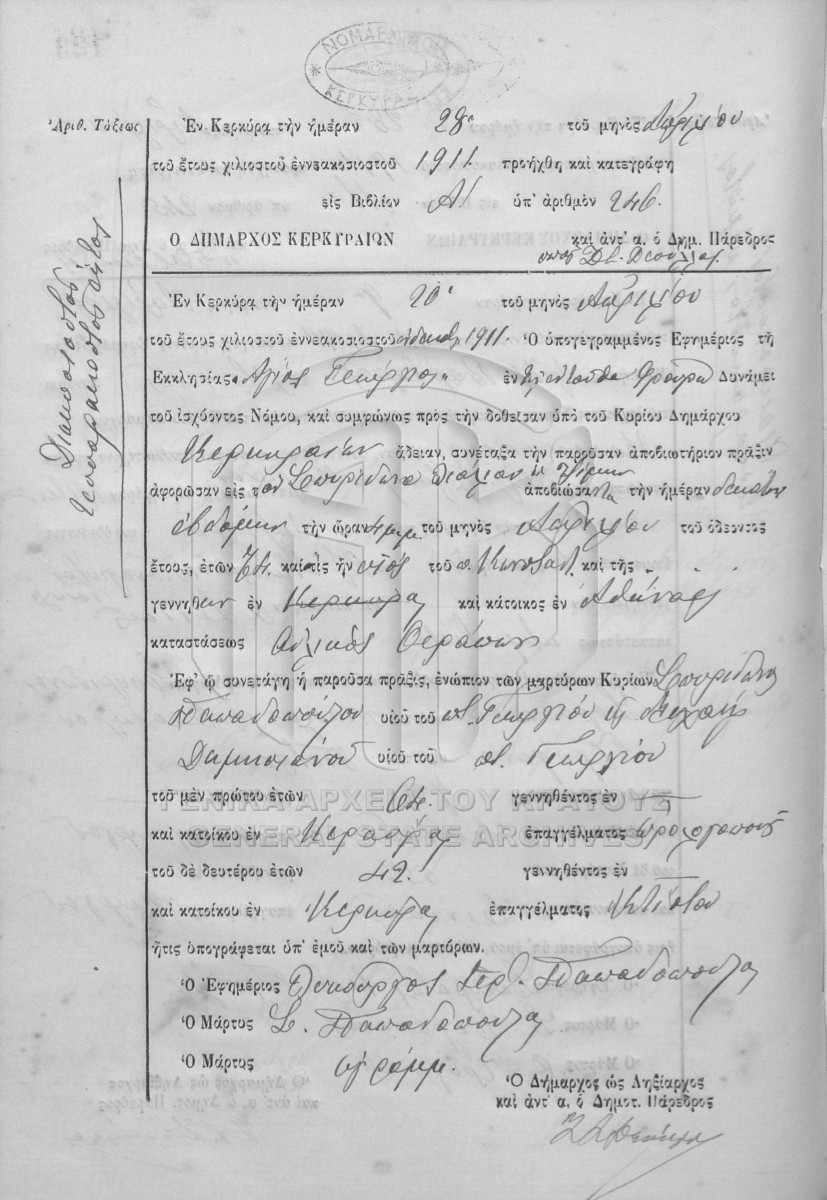 ΝΟΜΑΡΧΙΑ
ΚΕΡΚΥΡΑ
Ἀριθ. Τάξεως
Διακοσιοστὸς
τεσσαρακοστὸς ἕκτος
Ἐν Κερκύρᾳ τὴν ἡμέραν 28 τοῦ μηνὸς Ἀπριλίου
τοῦ ἔτους χιλιοστοῦ ἐννεακοσιοστοῦ 1911 προήχθη καὶ κατεγράφη
εἰς Βιβλίον Α! ὑπ' ἀριθμὸν 246.
Ο ΔΗΜΑΡΧΟΣ ΚΕΡΚΥΡΑΙΩΝ καὶ ἀντ' α. ὁ Δημ. Πάρεδρος
Ἐν Κερκύρᾳ τὴν ἡμέραν 20 τοῦ μηνὸς Ἀπριλίου
τοῦ ἔτους χιλιοστοῦ ἐννεακοσιοστοῦ 1911. Ὁ ὑπογεγραμμένος Ἐφημέριος τῆ
Ἐκκλησίας "Ἅγιος Γεώργιος" ἐν τῷ ἐνταῦθα Φρουρίῳ Δυνάμει
τοῦ ἰσχύοντος Νόμου, καὶ συμφώνως πρὸς τὴν δοθεῖσαν ὑπὸ τοῦ Κυρίου Δημάρχου
Κερκυραίων ἄδειαν, συνέταξα τὴν παροῦσαν ἀποβιωτήριον πρᾶξιν
ἀφορῶσαν εἰς τὸν Σπυρίδωνα ἀποβιώσαντα τὴν ἡμέραν δεκάτην
ἑβδόμην τὴν ὥραν 4 μ.μ. τοῦ μηνὸς Ἀπριλίου τοῦ ὁδεύοντος
ἔτους, ἐτῶν 74 καὶ τις ἦν υἱὸς τοῦ καὶ τῆς
γεννηθεὶς ἐν Κερκύρᾳ καὶ κάτοικος ἐν Ἀθήναις
καταστάσεως Αὐλικὸς Θεράπων
Ἐφ' ᾧ συνετάγη ἡ παροῦσα πρᾶξις, ἐνώπιον τῶν μαρτύρων Κυρίων Σπυρίδωνος
Παπαδοπούλου υἱοῦ τοῦ π. Γεωργίου καὶ Μιχαὴλ
Δαμιανοῦ υἱοῦ τοῦ π. Γεωργίου
τοῦ μὲν πρώτου ἐτῶν 64 γεννηθέντος ἐν
καὶ κατοίκου ἐν Κερκύρᾳ ἐπαγγέλματος ὡρολογοποιοῦ
τοῦ δὲ δευτέρου ἐτῶν 42 γεννηθέντος ἐν
καὶ κατοίκου ἐν Κερκύρᾳ ἐπαγγέλματος Κτίστου
ἥτις ὑπογράφεται ὑπ' ἐμοῦ καὶ τῶν μαρτύρων.
Ὁ Ἐφημέριος Λυκοῦργος Ἱερ. Παπαδόπουλος
Ὁ Μάρτυς Σ. Παπαδόπουλος
Ὁ Μάρτυς ἀγράμμ.
Ὁ Δήμαρχος ὡς Ληξίαρχος
καὶ ἀντ' α. ὁ Δημοτ. Πάρεδρος
ΓΕΝΙΚΑ ΑΡΧΕΙΑ ΤΟΥ ΚΡΑΤΟΥΣ
GENERAL STATE ARCHIVES